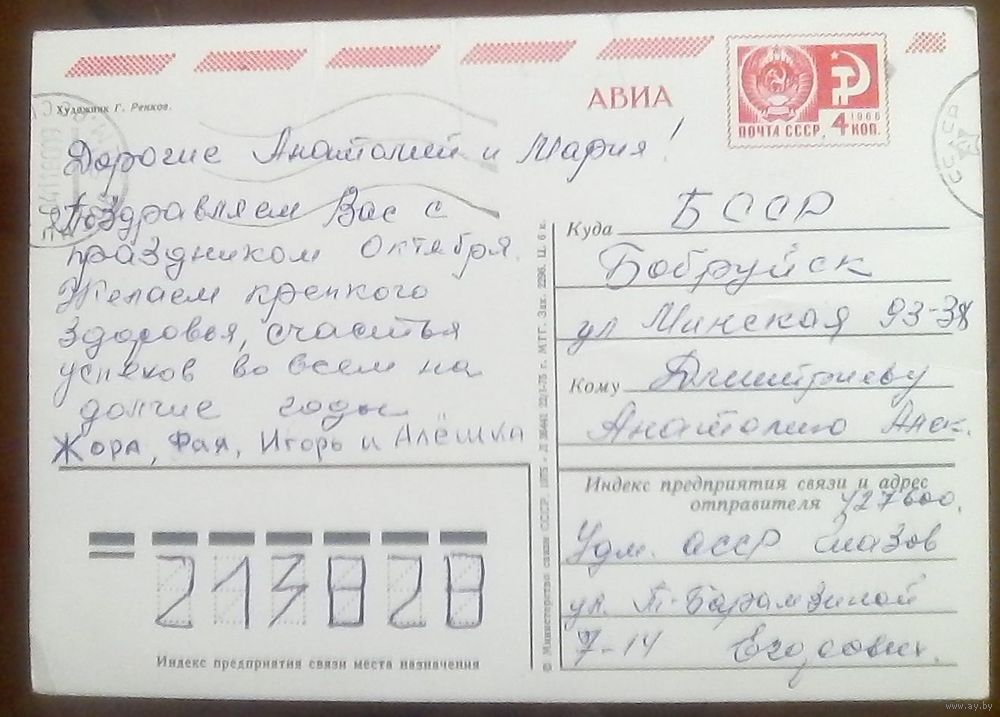 Художник Г. Ренков.
АВИА
ПОЧТА СССР. 4 КОП.
1966
Дорогие Анатолий и Мария!
Поздравляем Вас с
праздником Октября.
Желаем крепкого
здоровья, счастья
успехов во всем на
долгие годы
Жора, Фая, Игорь и Алёшка
Куда БССР
Бобруйск
ул Минская 93-38
Кому Дмитриеву
Анатолию Алек.
Индекс предприятия связи и адрес
отправителя 427600.
Удм. АССР Глазов
ул. Т-Барамзиной
7-14
213828
Индекс предприятия связи места назначения
© Министерство связи СССР, 1975 г. 22/I-75 г. МТГ. Зак. 2296. Ц. 6 к.
www.ay.by